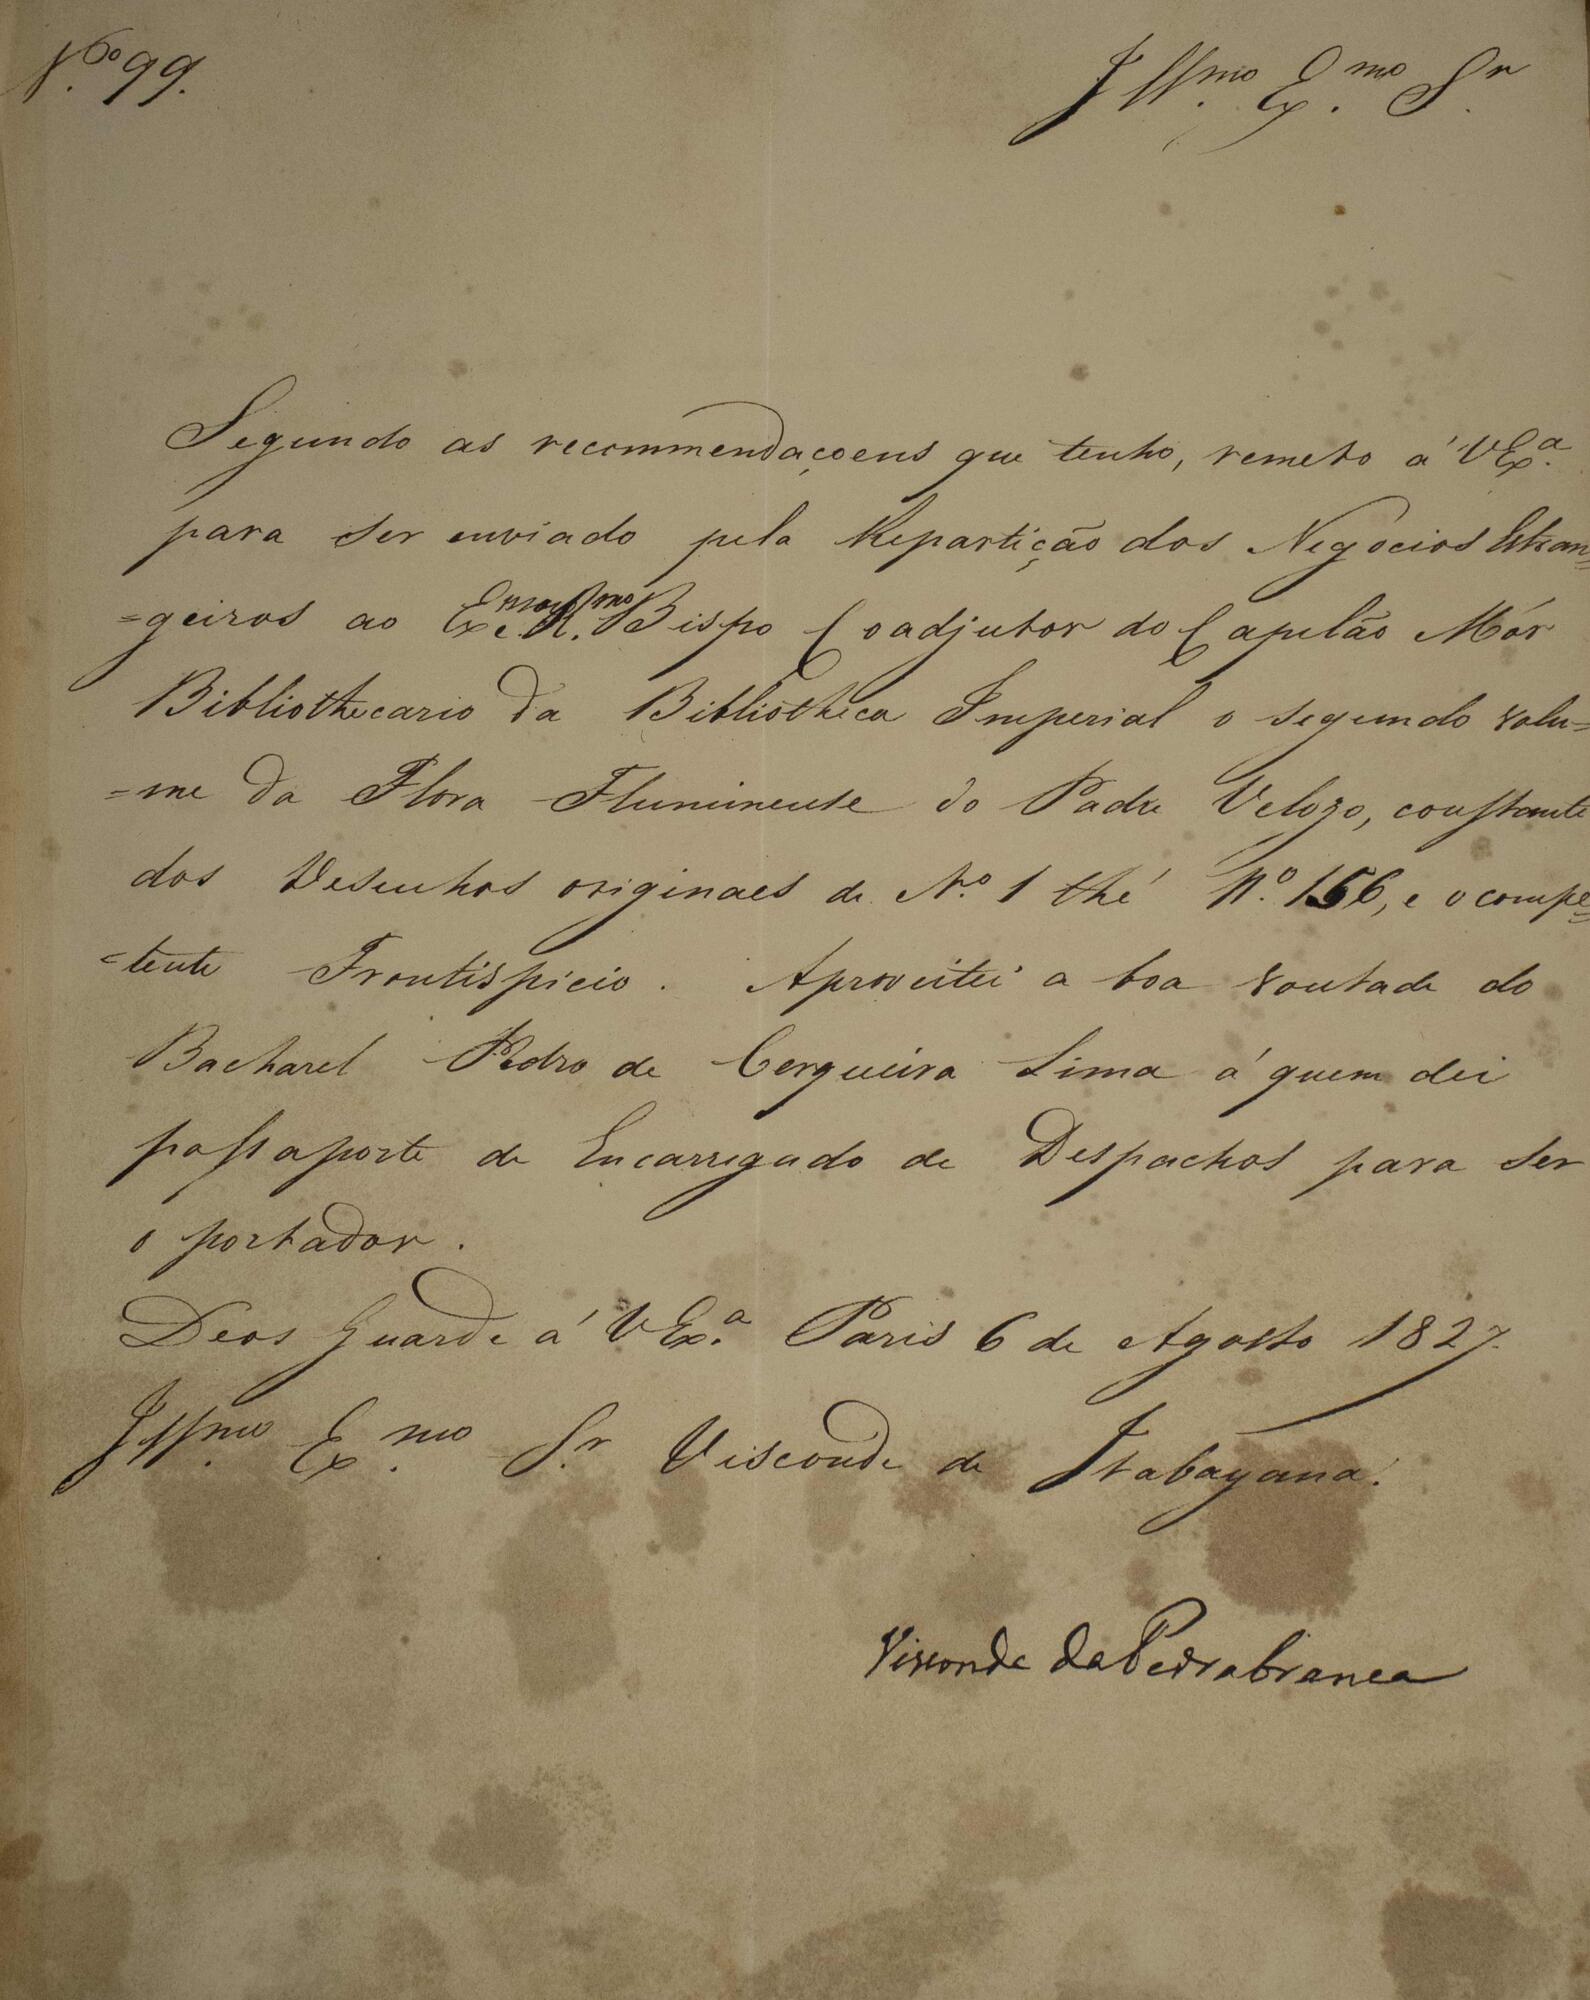 N.º 99.
Ill.mo Ex.mo Sr.
Segundo as recommendaçoens que tenho, remeto á VEx.a
para ser enviado pela Repartição dos Negocios Estran=
=geiros ao Ex.mo e R.mo Bispo Coadjutor do Capelão Mór
Bibliothecario da Bibliotheca Imperial o segundo volu=
=me da Flora Fluminense do Padre Velozo, constante
dos Desenhos originaes de N.º 1 thé N.º 156, e o compe=
=tente Frontispicio. Aproveitei a boa vontade do
Bacharel Pedro de Cerqueira Lima á quem dei
passaporte de Encarregado de Despachos para ser
o portador.
Deos Guarde á VEx.a Paris 6 de Agosto 1827.
Ill.mo Ex.mo Sr. Visconde de Itabayana.
Visconde da Pedrabranca